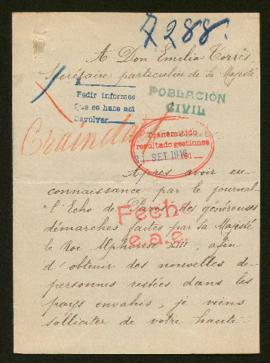 7288.
A Don Emilio Torrès
Secrétaire particulier de Sa Majesté
Pedir informes
Que se haga así
Devolver
POBLACIÓN
CIVIL
Transmitido
resultado gestiones
SET 1916
Après avoir eu
connaissance par le journal
l'Echo de Paris des généreuses
Fech
e.a.c.
démarches faites par Sa Majesté
le Roi Alphonse XIII, afin
d'obtenir des nouvelles de
personnes restées dans les
pays envahis, je viens
solliciter de votre haute